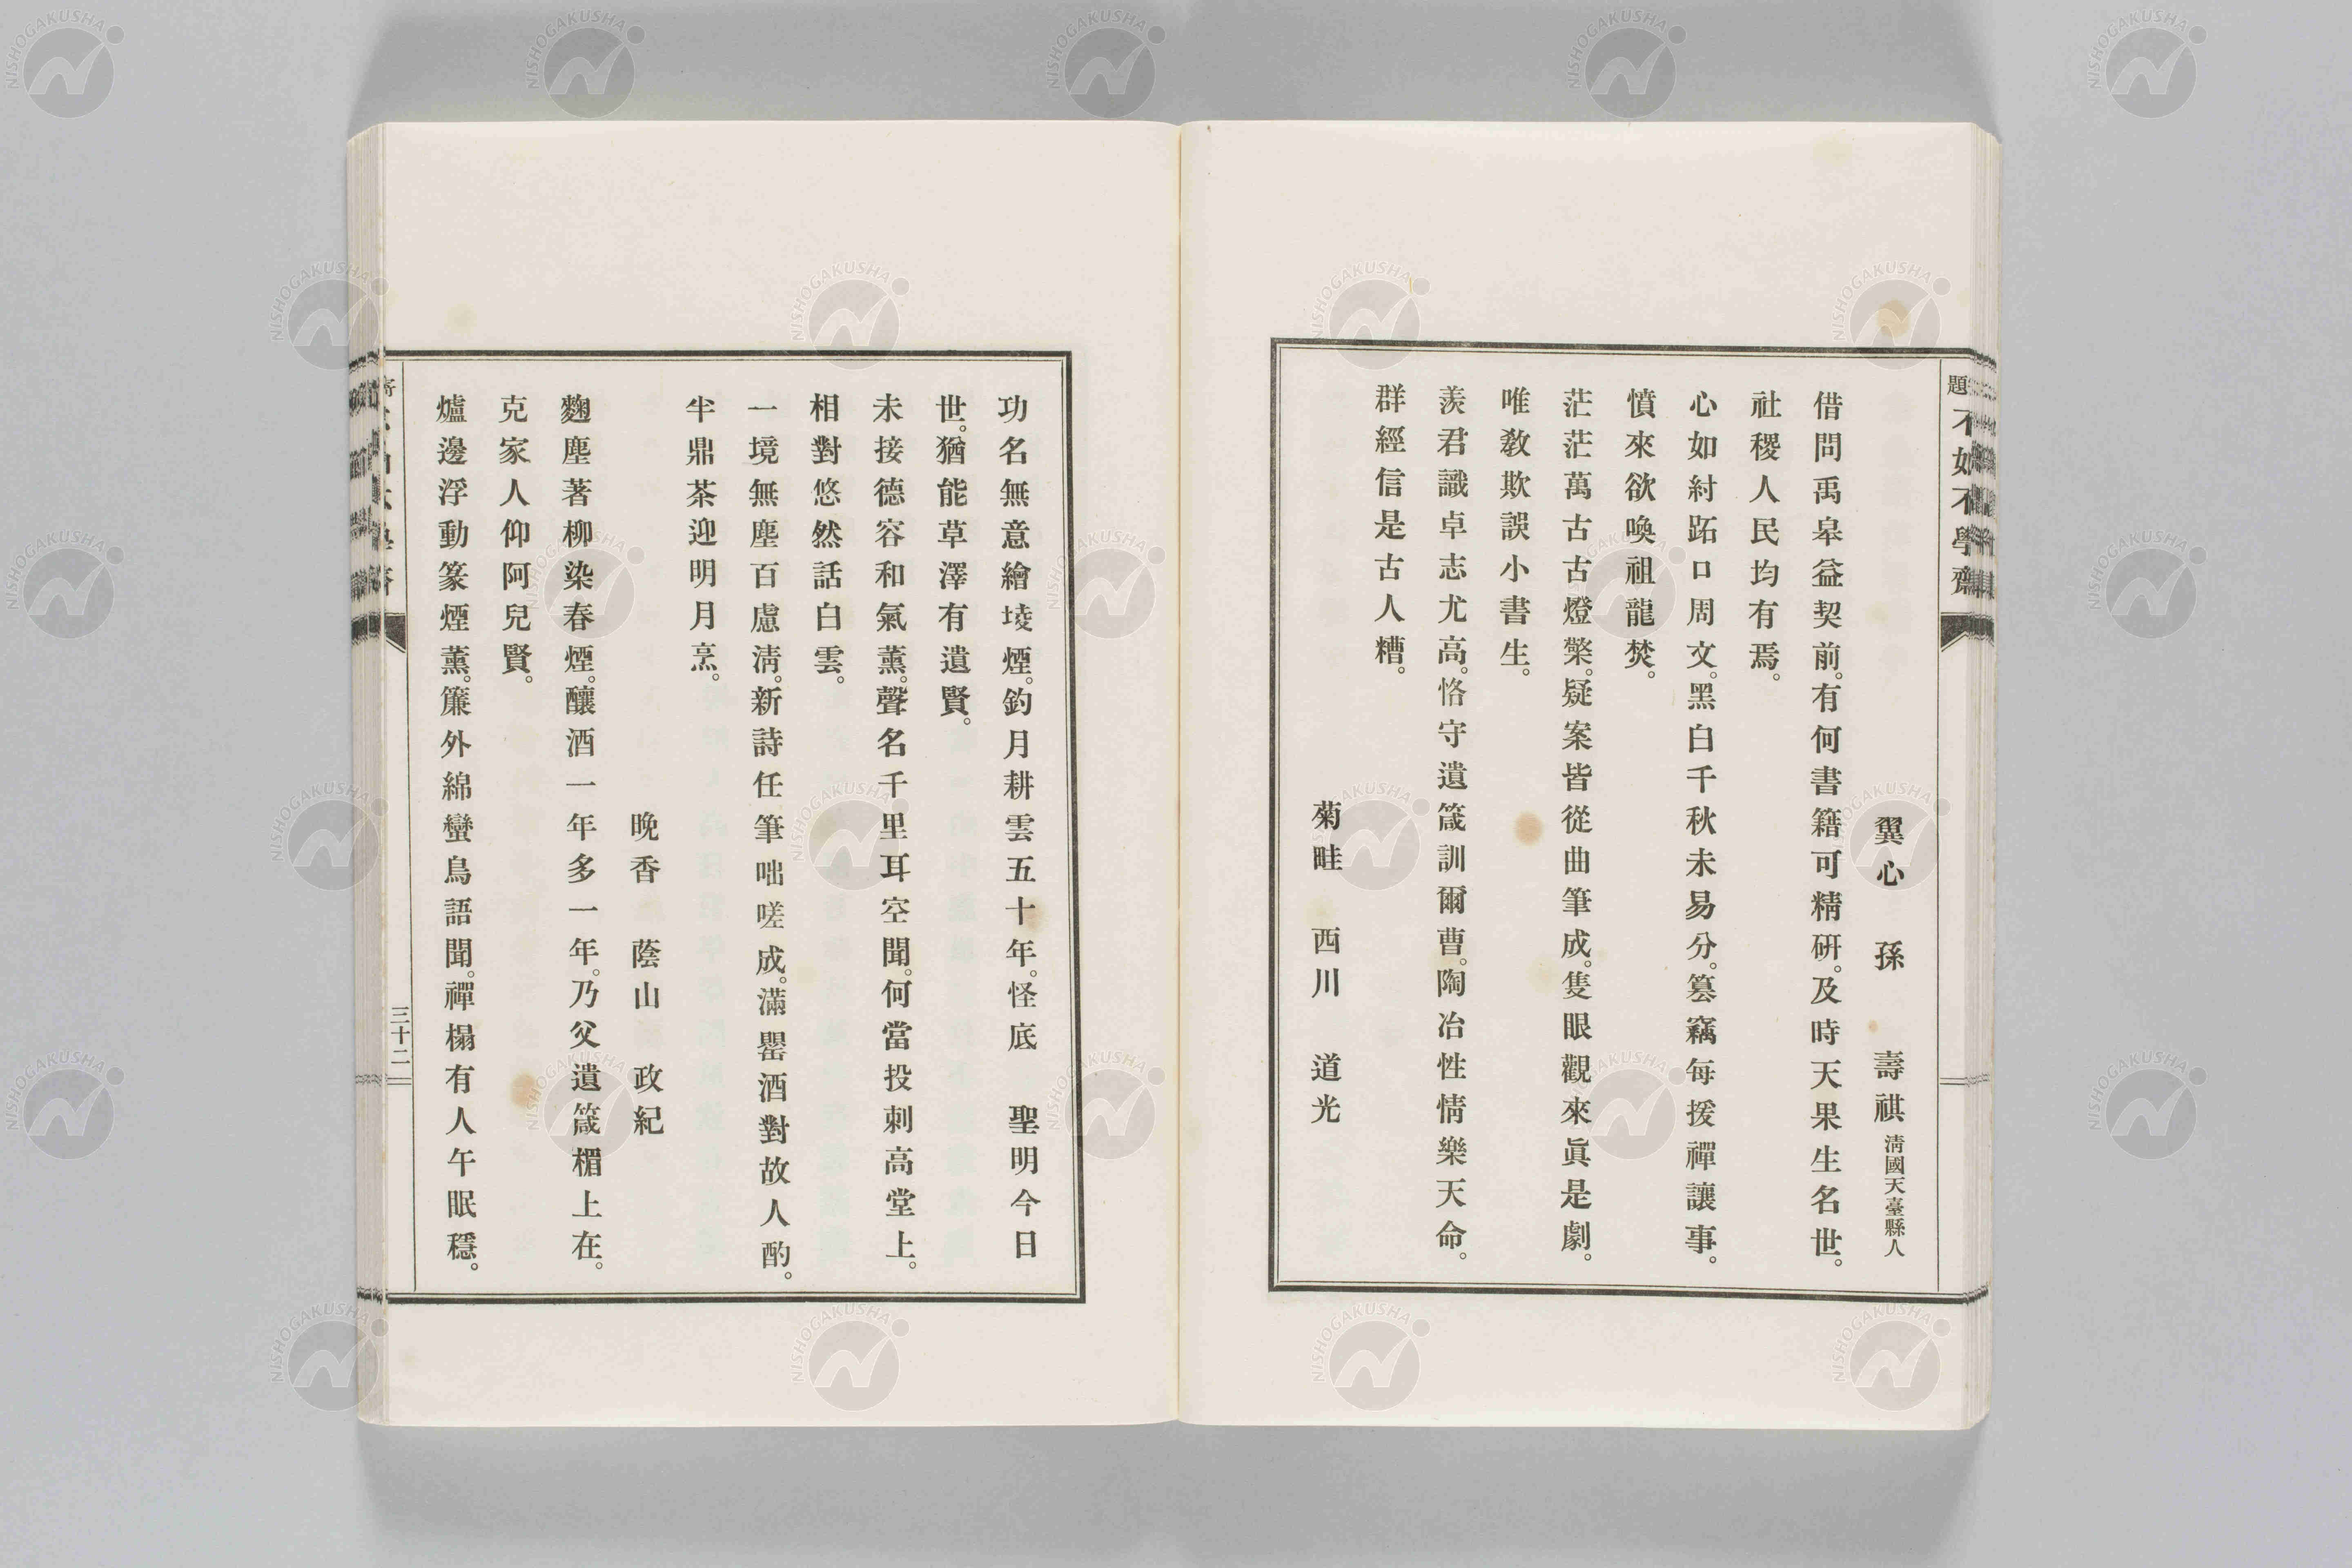 題不如不學齋
翼心 孫 壽祺 淸國天臺縣人
借問禹皋益契前。有何書籍可精硏。及時天果生名世。
社稷人民均有焉。
心如紂跖口周文。黑白千秋未易分。簒竊每援禪讓事。
憤來欲喚祖龍焚。
茫茫萬古古燈檠。疑案皆從曲筆成。隻眼觀來眞是劇。
唯敎欺誤小書生。
羨君識卓志尤高。恪守遺箴訓爾曹。陶冶性情樂天命。
群經信是古人糟。
菊畦 西川 道光
功名無意繪堎煙。釣月耕雲五十年。怪底 聖明今日
世。猶能草澤有遺賢。
未接德容和氣薰。聲名千里耳空聞。何當投刺高堂上。
相對悠然話白雲。
一境無塵百慮淸。新詩任筆咄嗟成。滿罌酒對故人酌。
半鼎茶迎明月烹。
晚香 蔭山 政紀
麴塵著柳染春煙。釀酒一年多一年。乃父遺箴楣上在。
克家人仰阿兒賢。
爐邊浮動篆煙薰。簾外綿蠻鳥語聞。禪榻有人午眠穩。
三十二
NISHOGAKUSHA